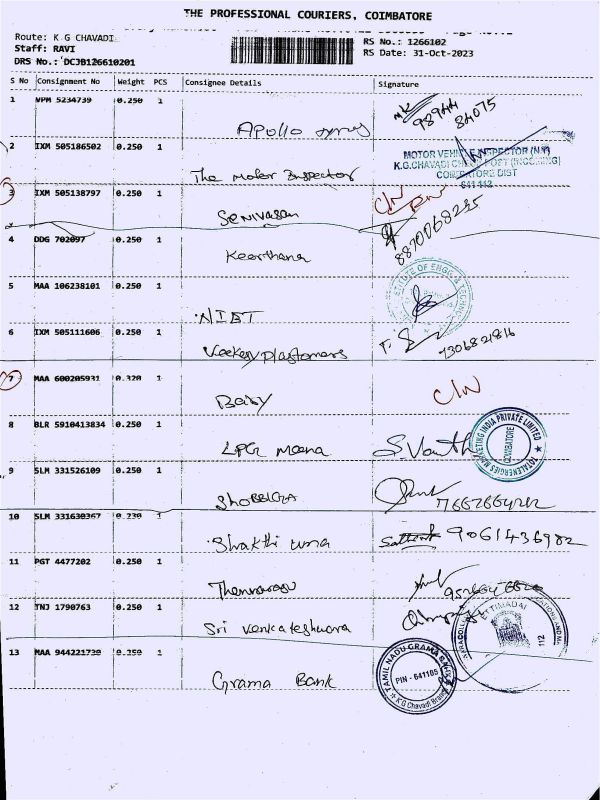 THE PROFESSIONAL COURIERS, COIMBATORE
Route: K G CHAVADI
Staff: RAVI
DRS No.: DCJB126610201
RS No.: 1266102
RS Date: 31-Oct-2023
S No Consignment No Weight PCS Consignee Details Signature
1 VPM 5234739 0.250 1
98944 84075
Apollo
2 IXM 505186502 0.250 1
MOTOR VEHICLE INSPECTOR (N.T)
K.G.CHAVADI CHECK POST (INCOMING)
COIMBATORE DIST
641 112
The Motor Inspector
3 IXM 505138797 0.250 1
C/N
Senivasan
4 DDG 702097 0.250 1
8870068235
Keerthana
5 MAA 106238101 0.250 1
INSTITUTE OF ENGG & TECHNOLOGY
NIET
6 IXM 505111606 0.250 1
Veekay Plastomers
7306821816
7 MAA 600205931 0.320 1
C/N
Baby
8 BLR 5910413834 0.250 1
LPG Meena
S. Vanth
TOTALENERGIES MARKETING INDIA PRIVATE LIMITED
COIMBATORE
9 SLM 331526109 0.250 1
Shobbicaa
10 SLM 331630367 0.230 1
Shakthi uma
9061436982
11 PGT 4477202 0.250 1
Thennarasu
12 TNJ 1790763 0.250 1
Sri Venkateshwara
ETTIMADAI
112
13 MAA 944221730 0.250 1
Grama Bank
TAMIL NADU GRAMA BANK
PIN - 641105
K G Chavadi Branch